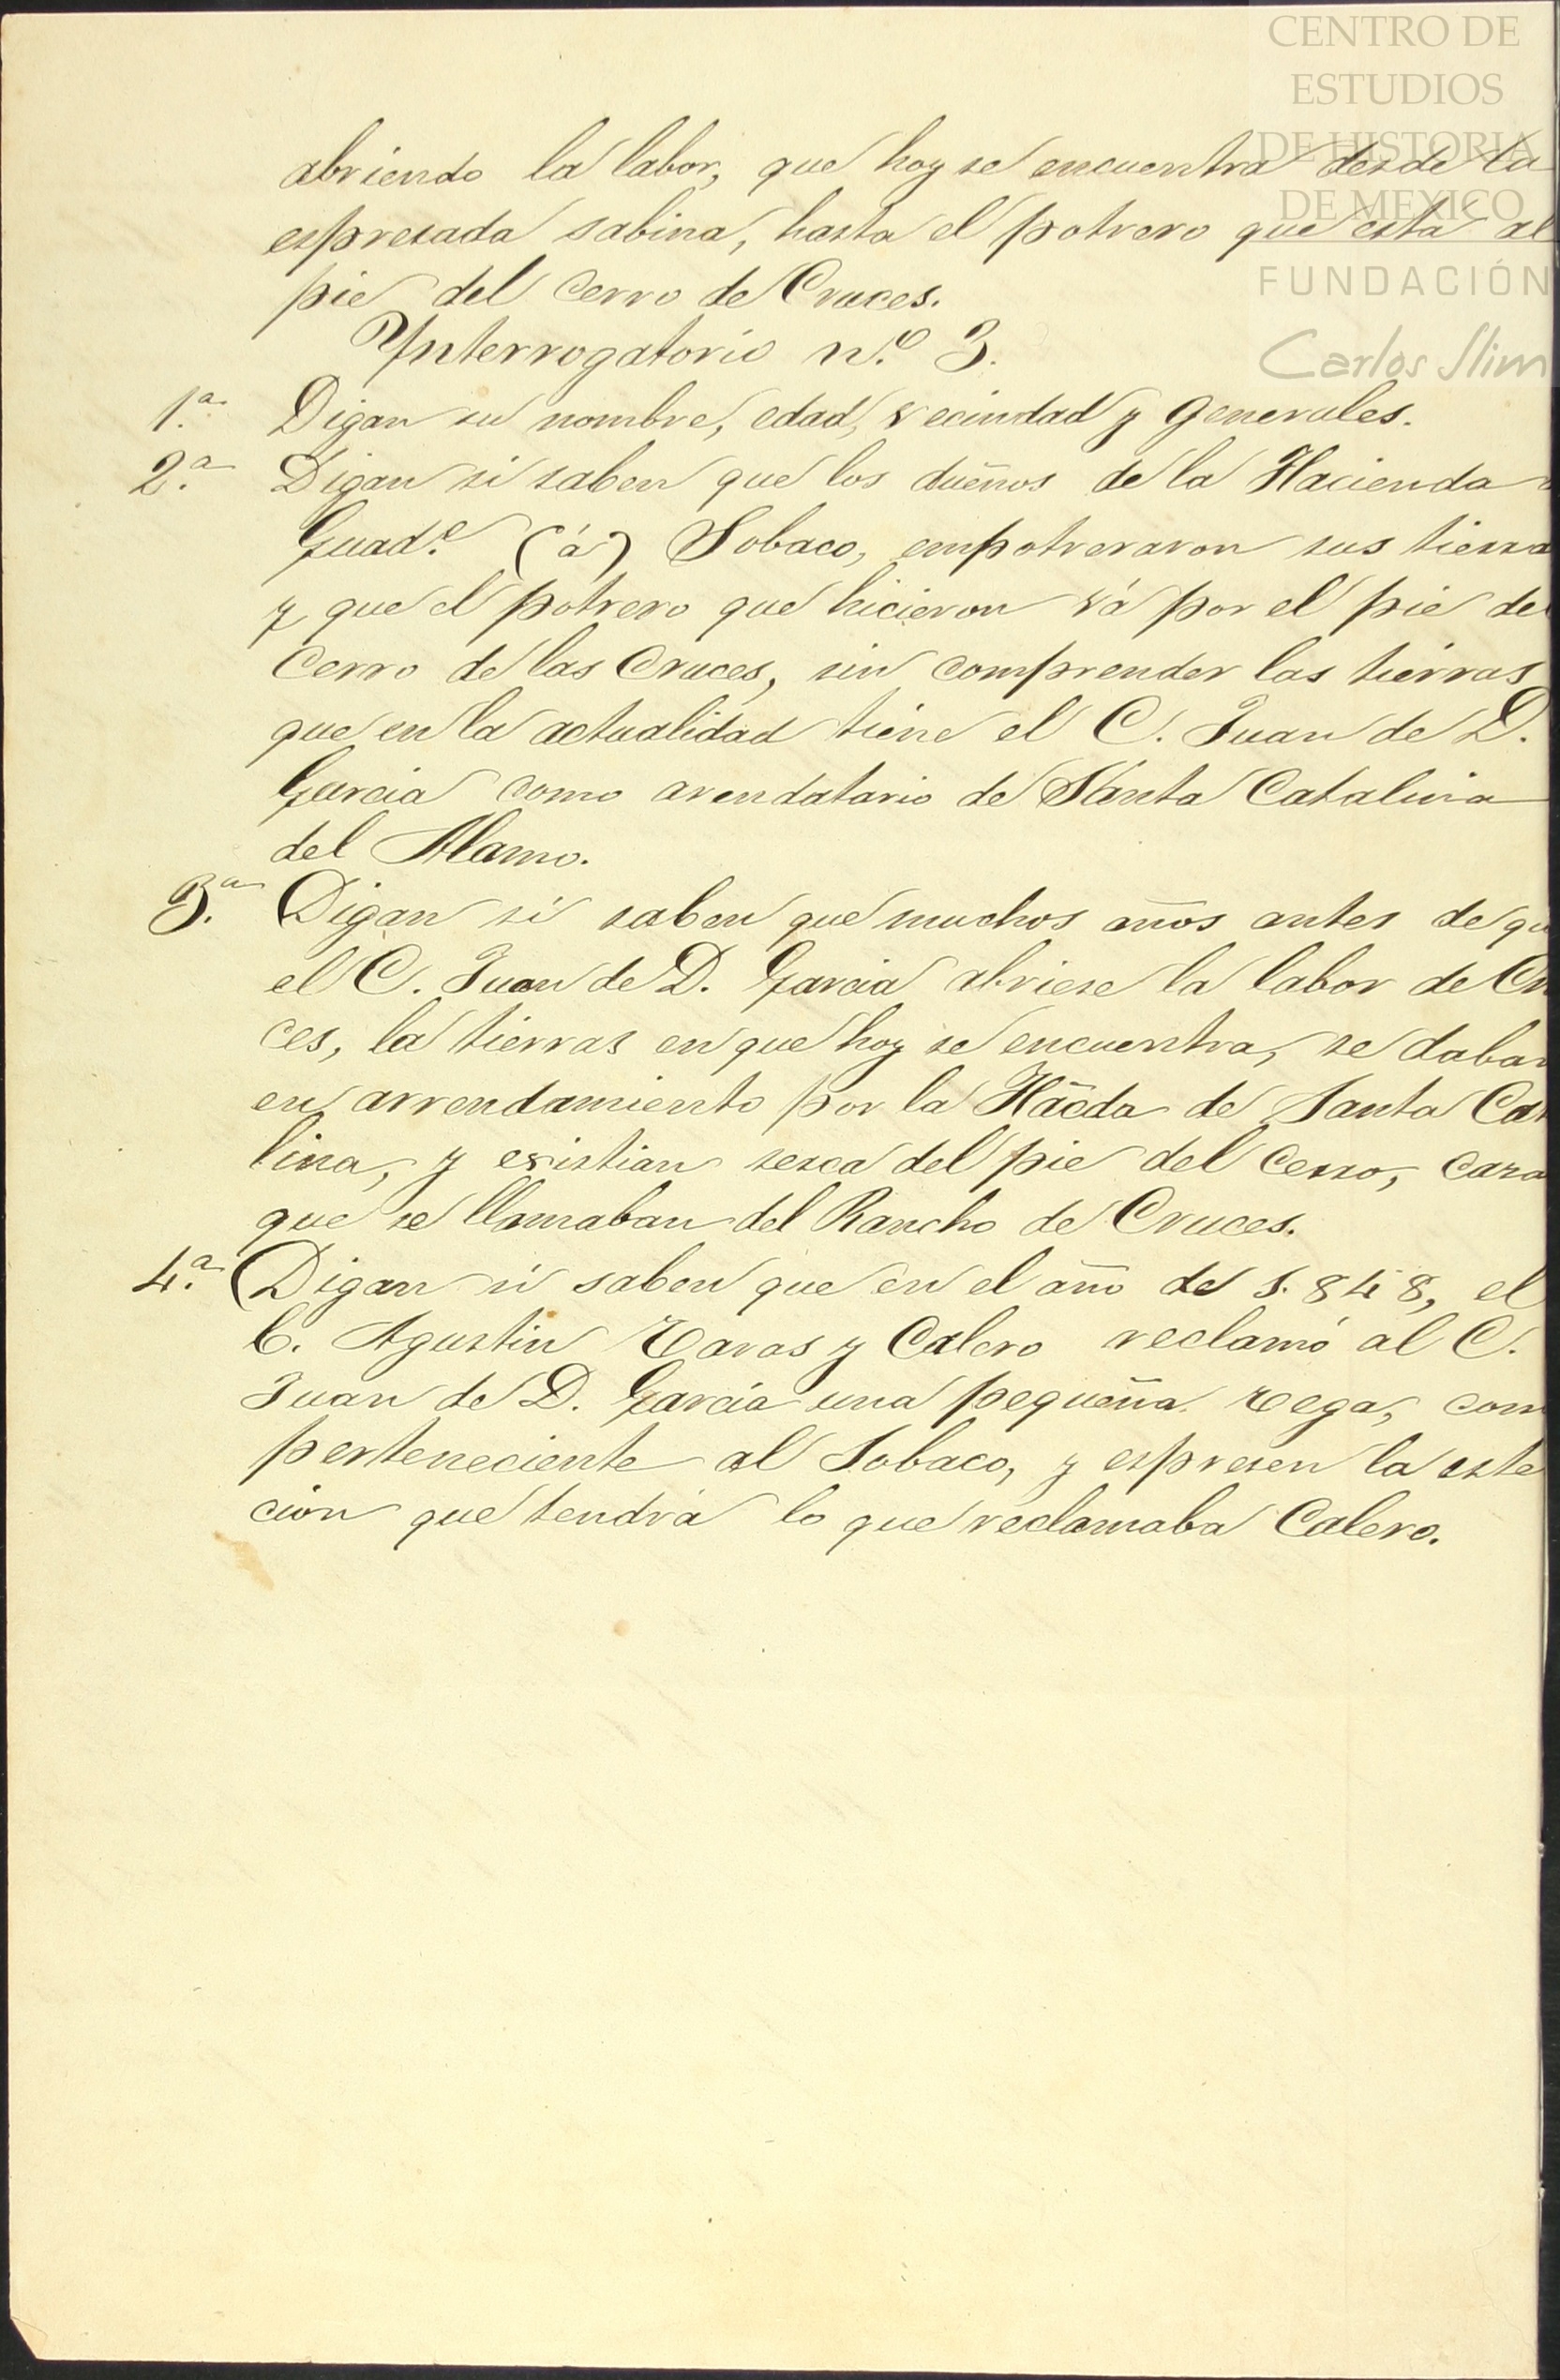 CENTRO DE
ESTUDIOS
DE HISTORIA
DE MEXICO
FUNDACIÓN
Carlos Slim
abriendo la labor, que hoy se encuentra desde la
espresada sabina, hasta el potrero que esta al
pie del cerro de Cruces.
Ynterrogatorio n.º 3.
1.ª Digan su nombre, edad, vecindad y generales.
2.ª Digan si saben que los dueños de la Hacienda
Guad.e (á) Sobaco, empotreraron sus tierra
y que el potrero que hicieron vá por el pie del
Cerro de las Cruces, sin comprender las tierras
que en la actualidad tiene el C. Juan de D.
Garcia como arendatario de Santa Catalina
del Alamo.
3.ª Digan si saben que muchos años antes de qu
el C. Juan de D. Garcia abriese la labor de Cru
ces, la tierras en que hoy se encuentra, se daban
en arrendamiento por la Hãcda de Santa Cat
lina, y existian serca del pie del Cerro, casa
que se llamaban del Rancho de Cruces.
4.ª Digan si saben que en el año de 1.848, el
C. Agustin Tavas y Calero reclamó al C.
Juan de D. Garcia una pequeña vega, com
perteneciente al Sobaco, y espresen la este
cion que tendrá lo que reclamaba Calero.